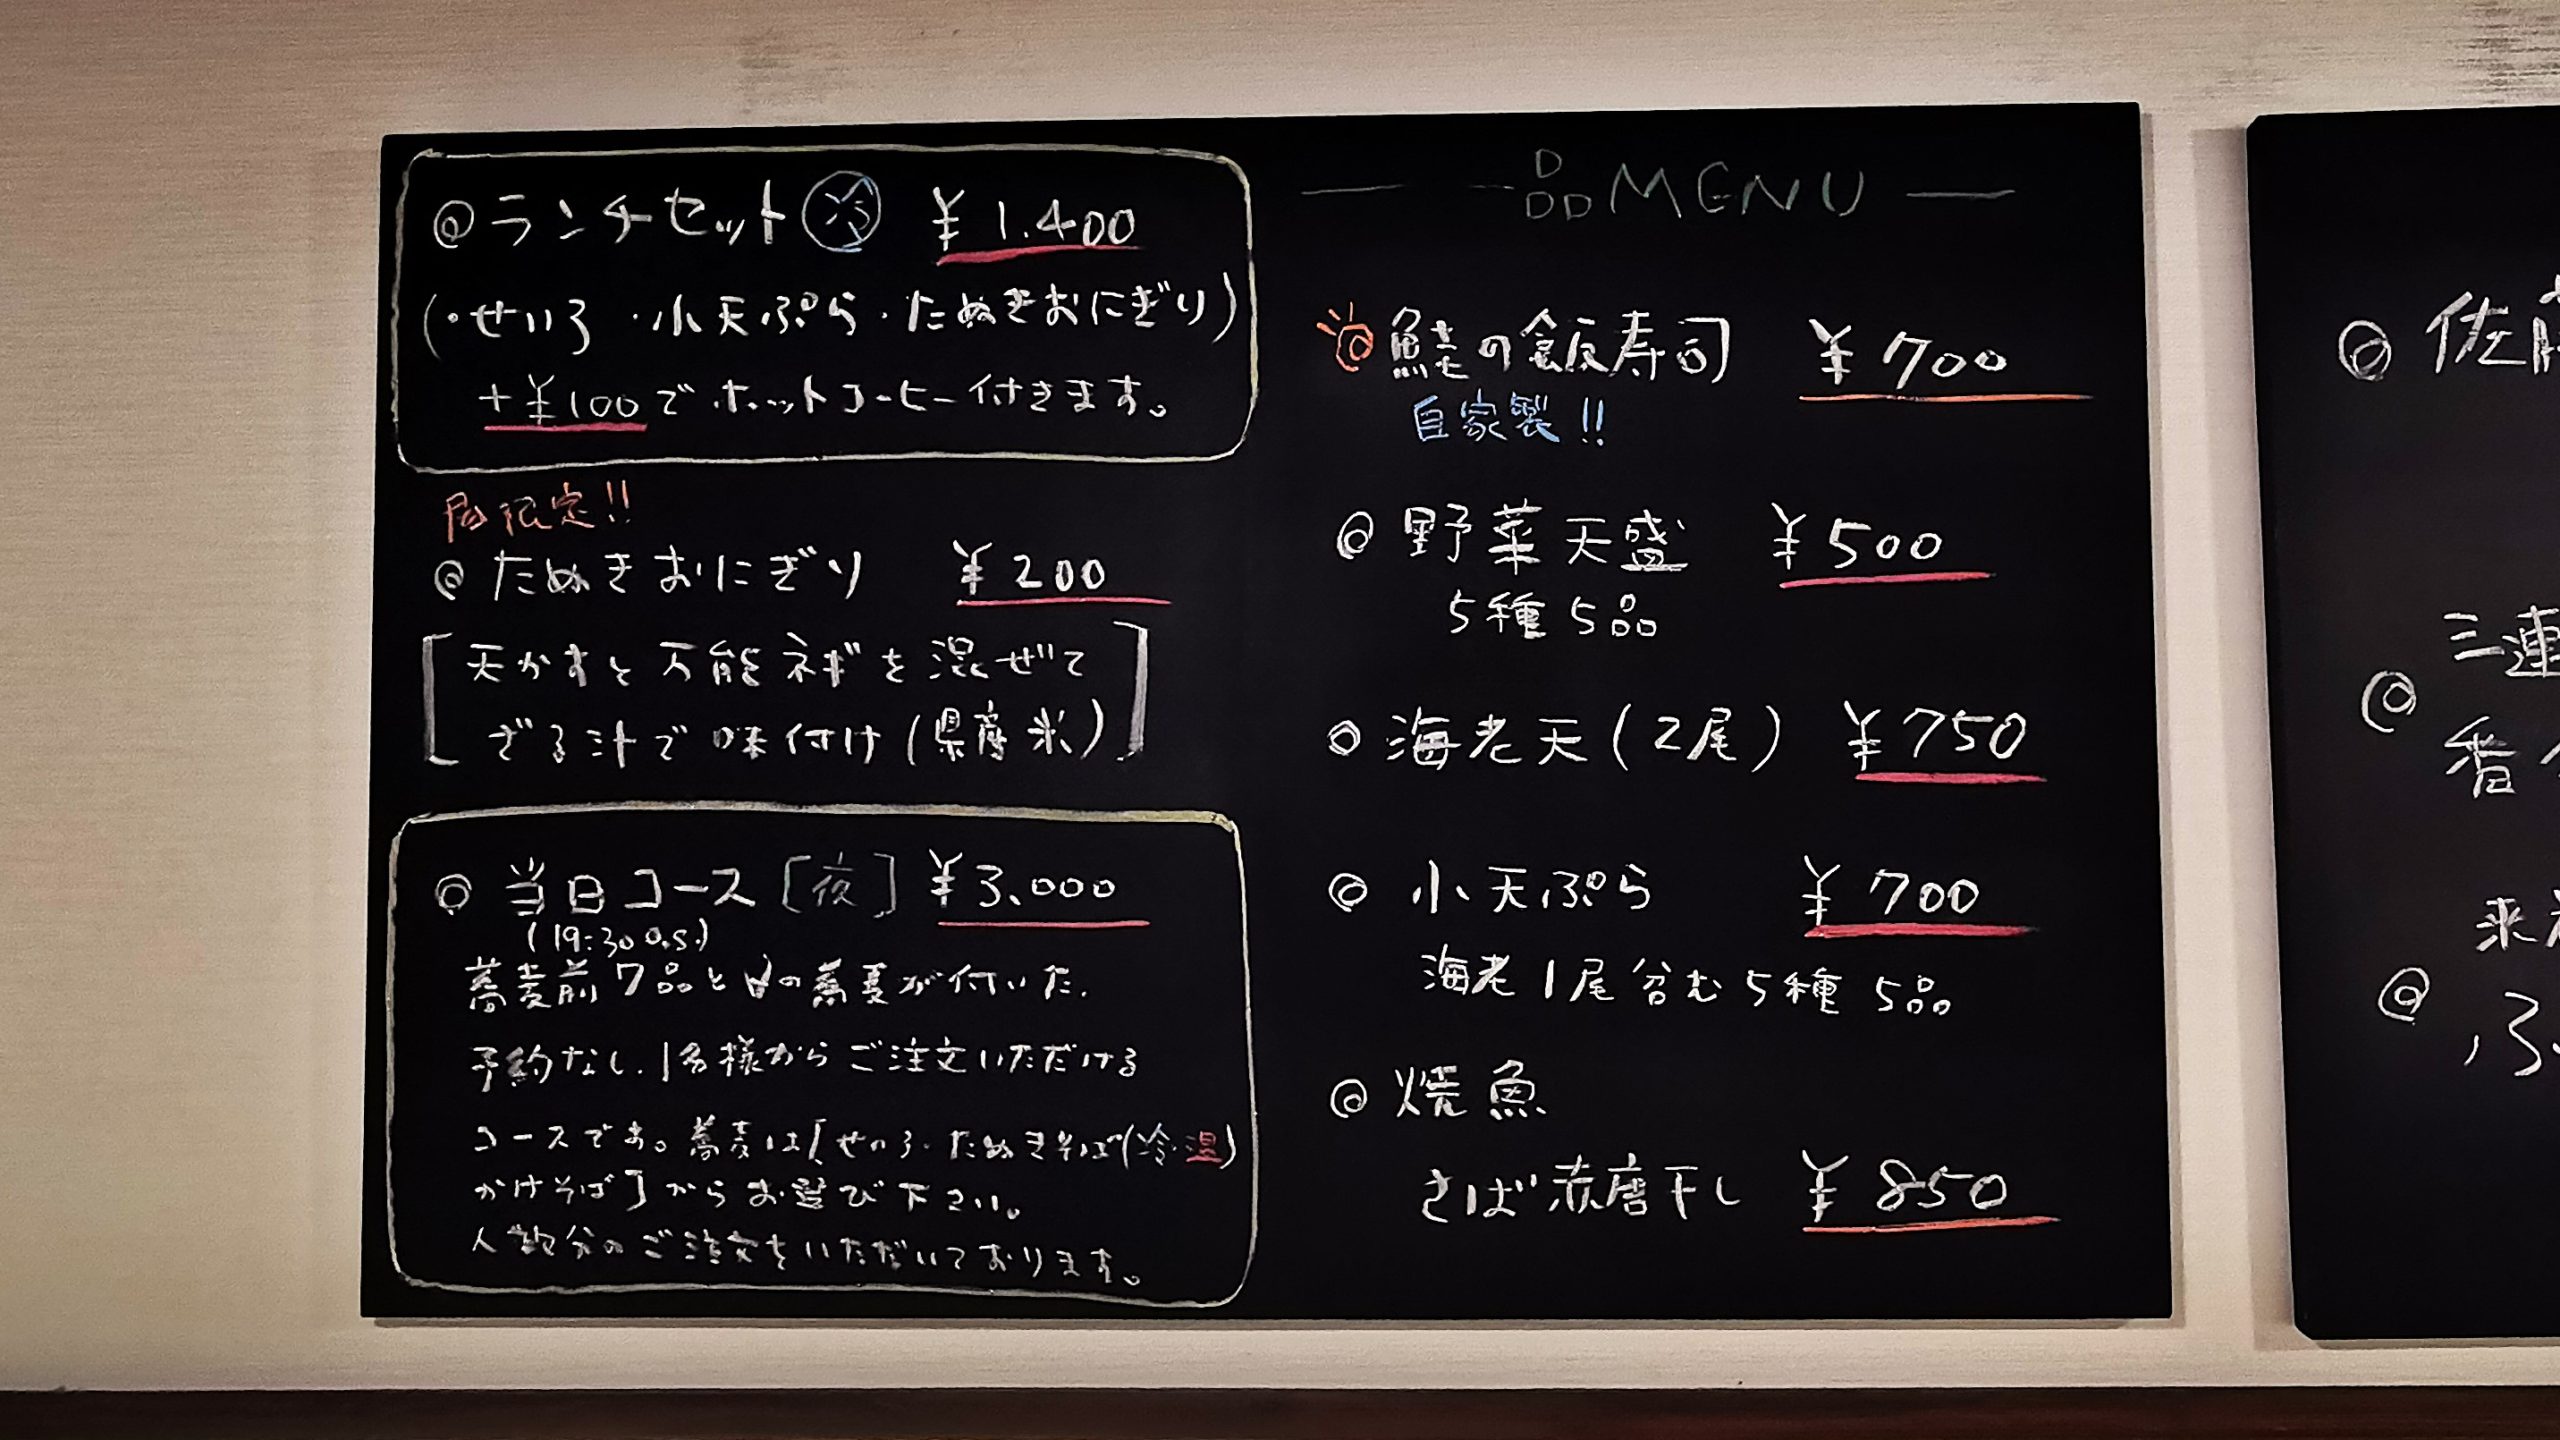 ◎ランチセット 冷 ¥1.400
(・せいろ ・小天ぷら・たぬきおにぎり)
+¥100でホットコーヒー付きます。
限定!!
◎たぬきおにぎり ¥200
[天かすと万能ネギを混ぜて
ざる汁で味付け(県産米)]
◎当日コース[夜] ¥3.000
(19:30 O.S.)
蕎麦前7品と〆の蕎麦が付いた、
予約なし、1名様からご注文いただける
コースです。蕎麦は「せいろ・たぬきそば(冷・温)
かけそば」からお選び下さい。
人数分のご注文をいただいております。
一品MENU
◎鮭の飯寿司 ¥700
自家製!!
◎野菜天盛 ¥500
5種5品
◎海老天(2尾) ¥750
◎小天ぷら ¥700
海老1尾含む5種5品
◎焼魚
さば赤唐干し ¥850
◎佐藤
三連
◎番
来
◎ふ